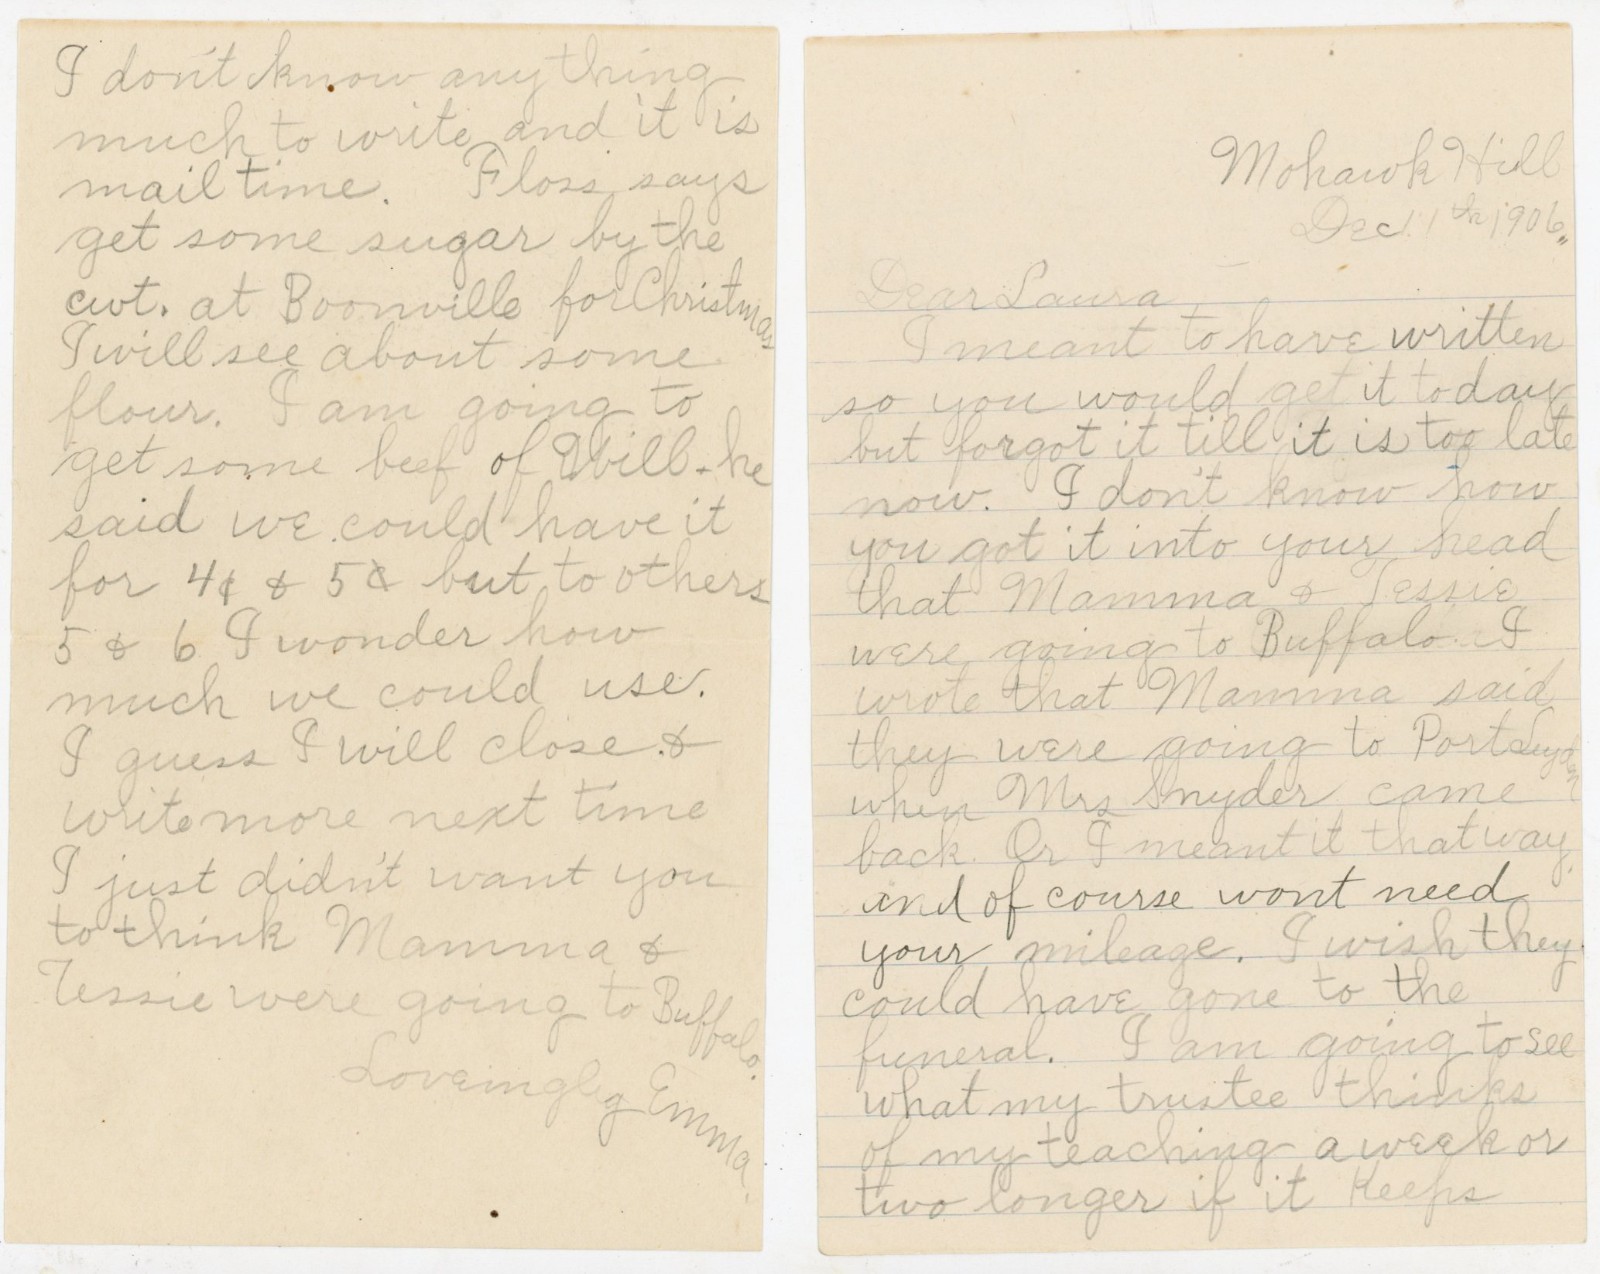 Mohawk Hill
Dec. 11th 1906.
Dear Laura,
I meant to have written
so you would get it today
but forgot it till it is too late
now. I don't know how
you got it into your head
that Mamma & Tessie
were going to Buffalo. I
wrote that Mamma said
they were going to Port Leyden
when Mrs Snyder came
back. Or I meant it that way.
and of course wont need
your mileage. I wish they
could have gone to the
funeral. I am going to see
what my trustee thinks
of my teaching a week or
two longer if it keeps
I don't know anything
much to write and it is
mail time. Floss says
get some sugar by the
cwt. at Boonville for Christmas
I will see about some
flour. I am going to
get some beef of Will - he
said we could have it
for 4¢ & 5¢ but to others
5 & 6 I wonder how
much we could use.
I guess I will close &
write more next time
I just didn't want you
to think Mamma &
Tessie were going to Buffalo.
Loveingly Emma.